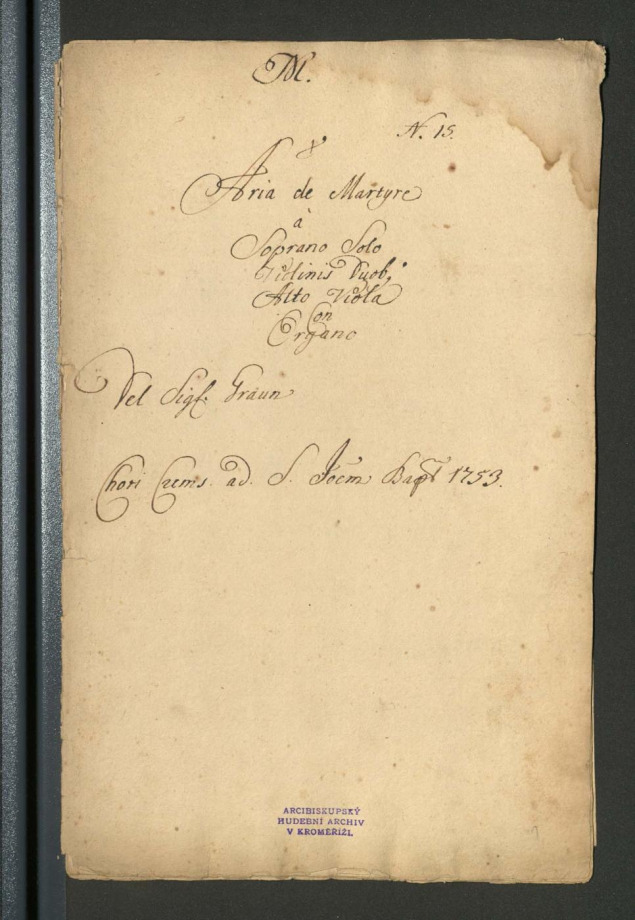 M.
N. 15.
Aria de Martyre
à
Soprano Solo
Violinis Duob9
Alto Viola
Con
Organo
Del Sigl. Graun
Chori Crems. ad. S. Joem Bapt 1753.
ARCIBISKUPSKÝ
HUDEBNÍ ARCHIV
V KROMĚŘÍŽI.